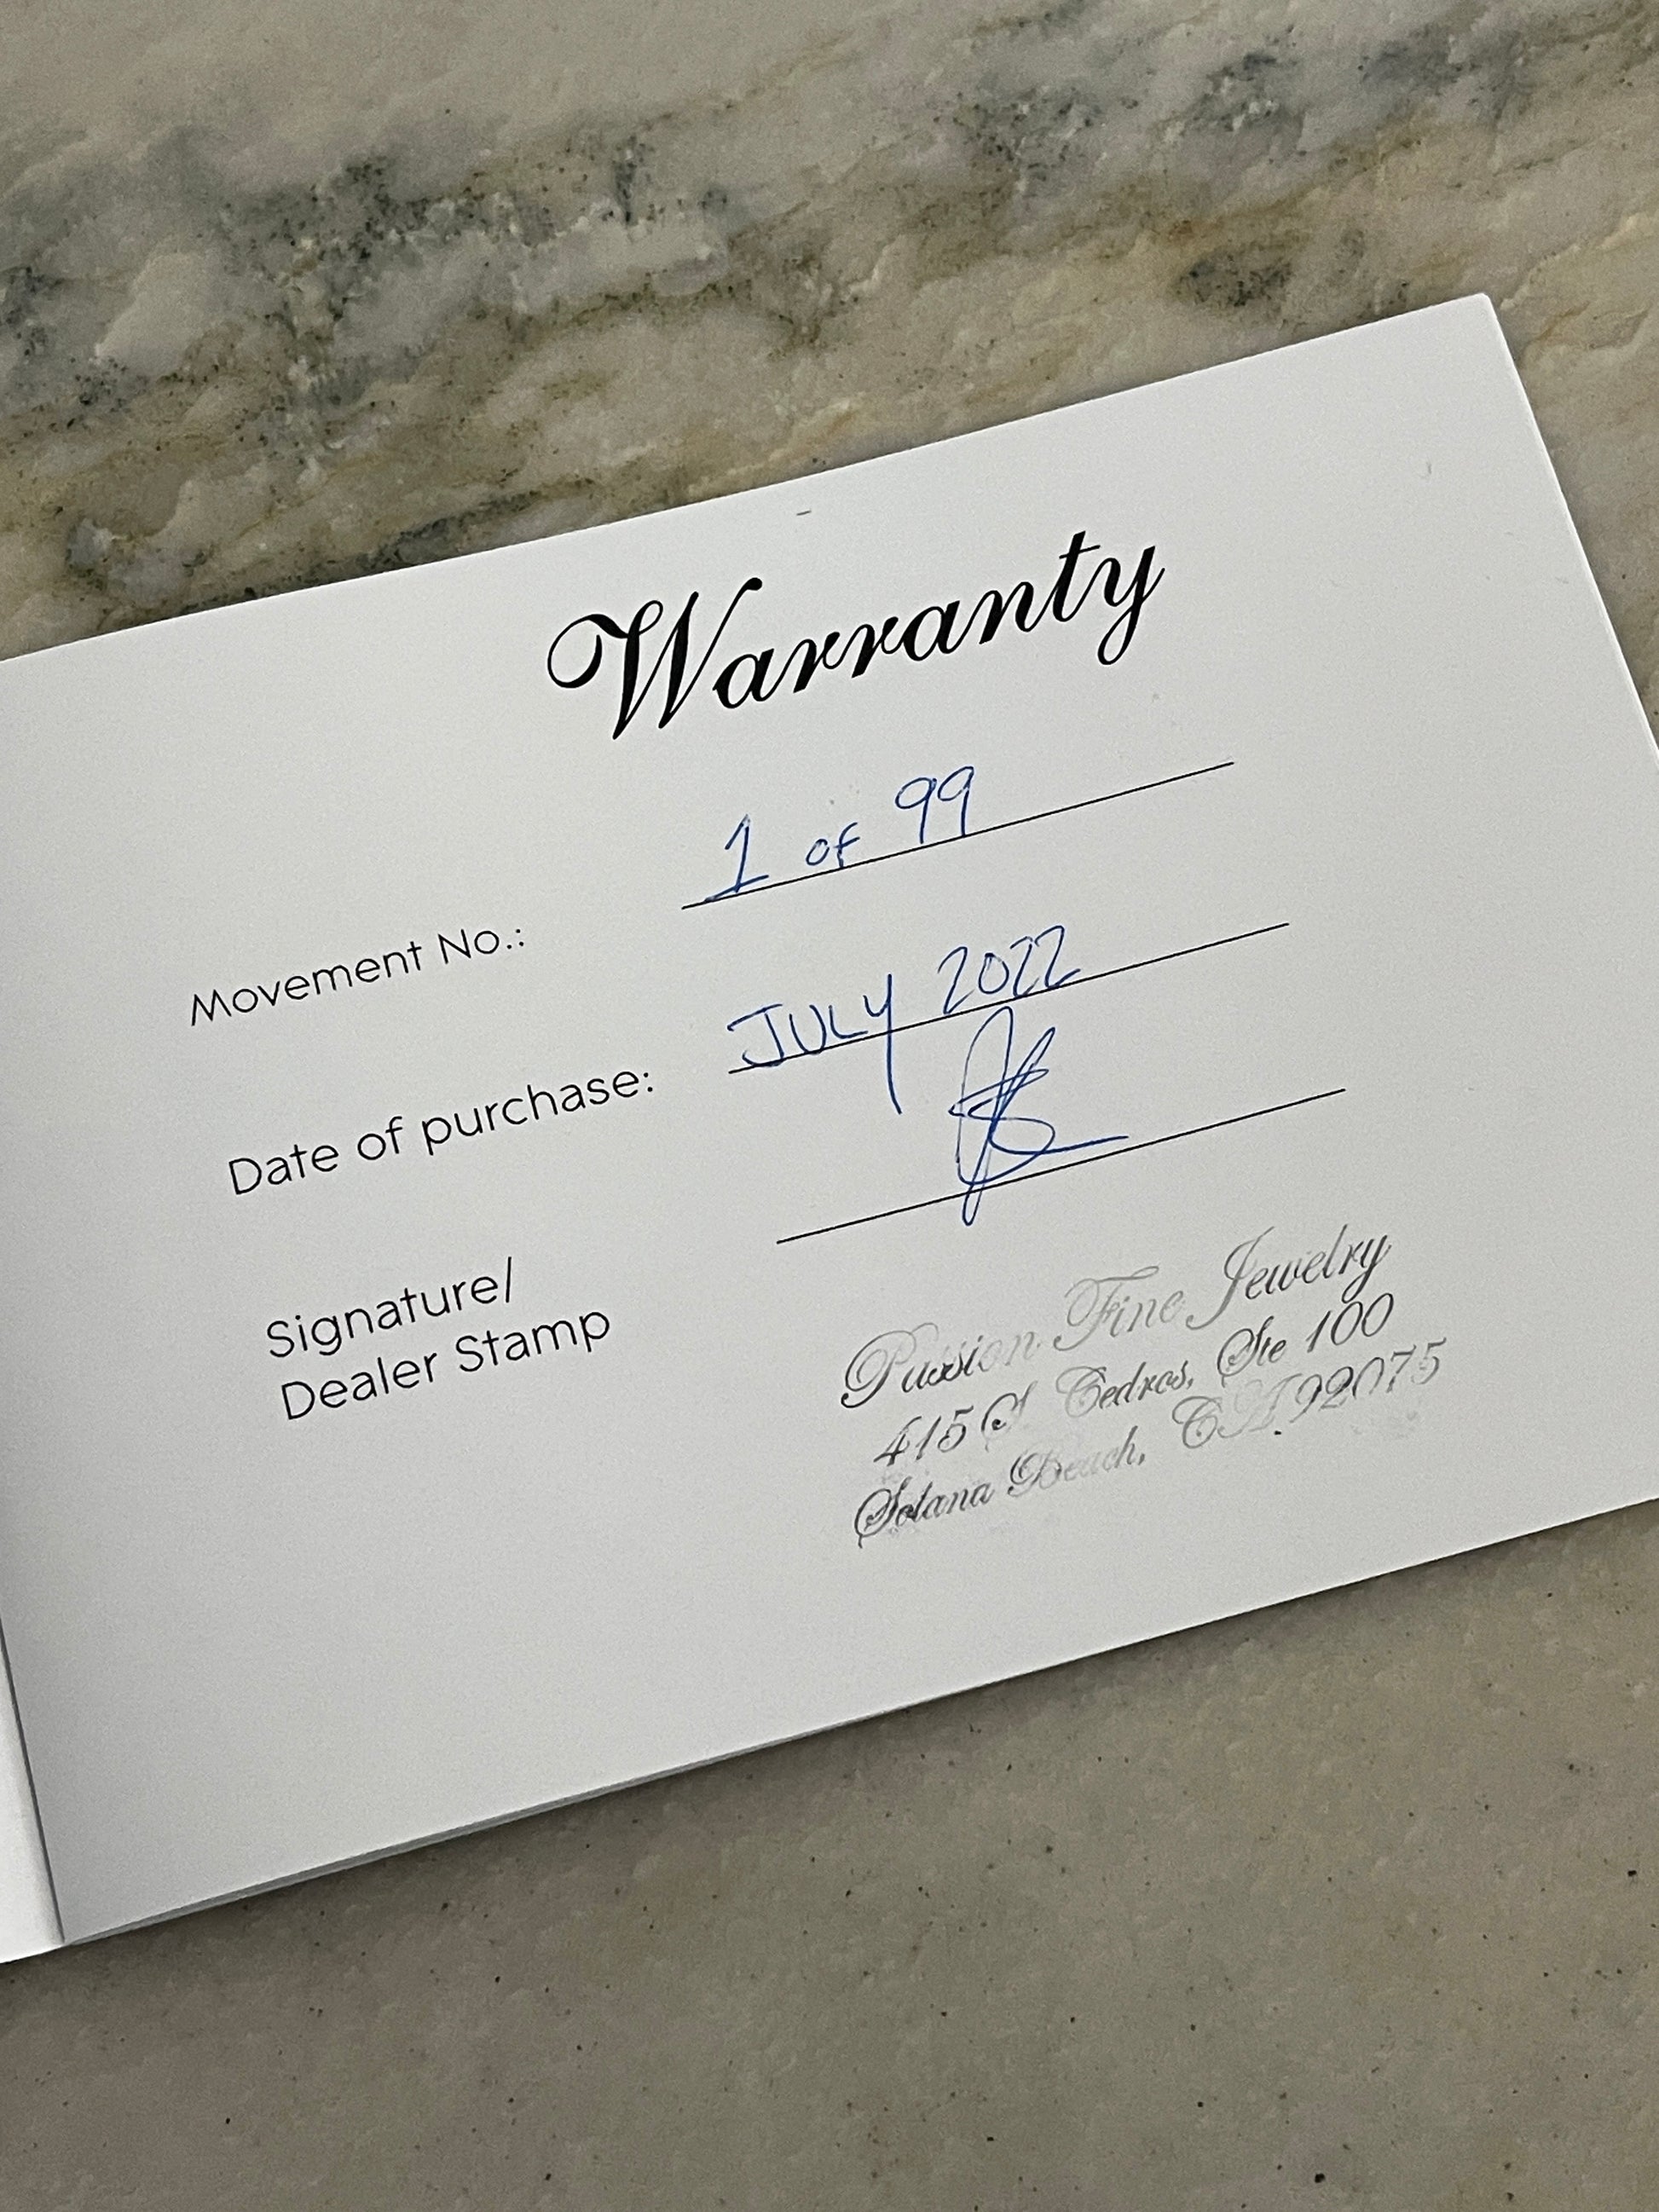 Warranty
Movement No.: 1 of 99
Date of purchase: JULY 2022
Signature/
Dealer Stamp
Passion Fine Jewelry
415 S Cedros, Ste 100
Solana Beach, CA 92075